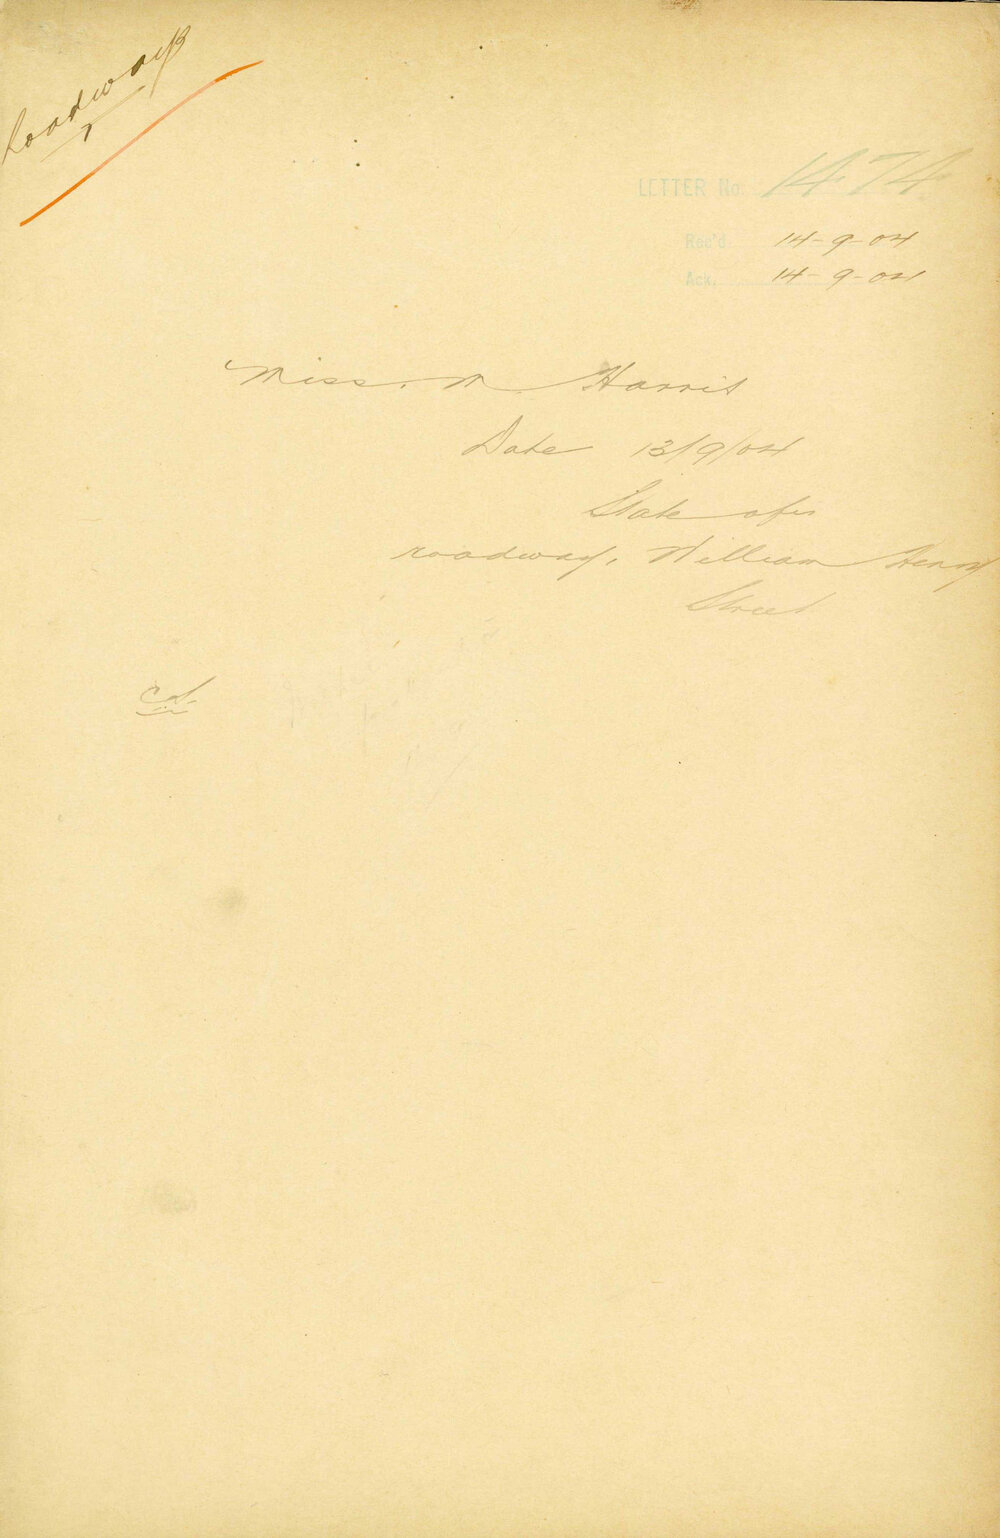 Roadways
LETTER No. 1474
Rec'd. 14-9-04
Ack. 14-9-04
Miss. M Harris
Date 13/9/04
State of
roadway, William Henry
Street